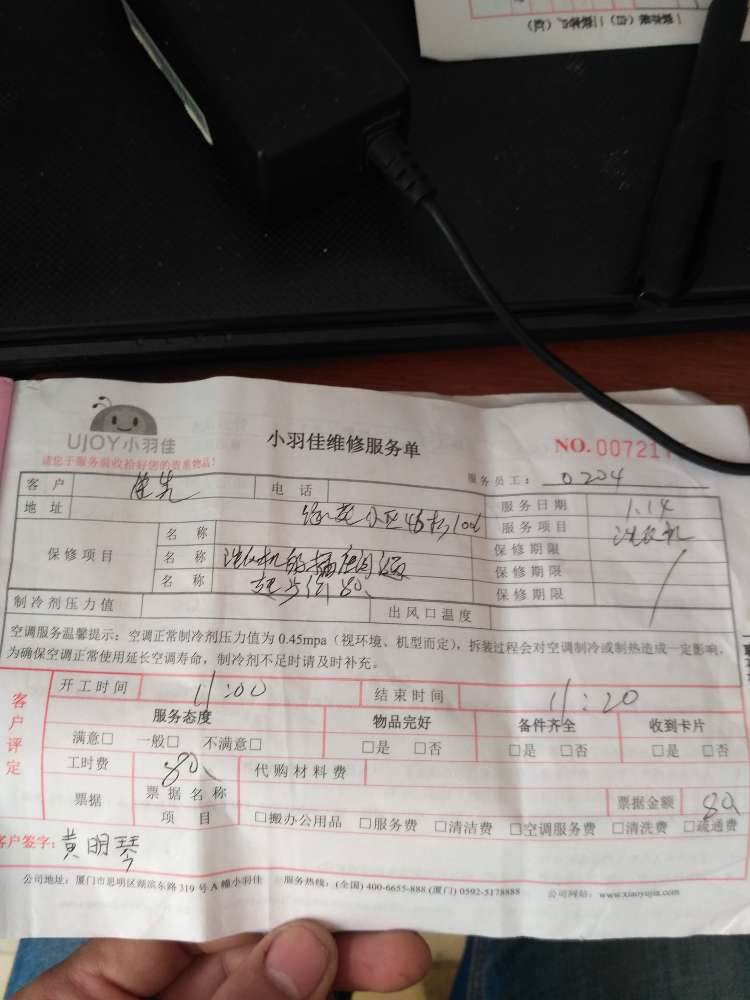 UJOY小羽佳
小羽佳维修服务单
NO. 007217
请您于服务前收拾好您的贵重物品!
服务员工: 0204
客 户
电 话
服务日期 1.14
地 址
服务项目 洗衣机
保修项目
名 称
保修期限
名 称
保修期限
名 称 起步价80
保修期限
制冷剂压力值
出风口温度
空调服务温馨提示:空调正常制冷剂压力值为 0.45mpa(视环境、机型而定),拆装过程会对空调制冷或制热造成一定影响,
为确保空调正常使用延长空调寿命,制冷剂不足时请及时补充。
客户评定
开工时间 11:00
结束时间 11:20
服务态度
物品完好
备件齐全
收到卡片
满意□ 一般□ 不满意□
□是 □否
□是 □否
□是 □否
工时费 80
代购材料费
票据
票据名称
票据金额 80
项 目
□搬办公用品 □服务费 □清洁费 □空调服务费 □清洗费 □疏通费
客户签字: 黄明琴
公司地址:厦门市思明区湖滨东路 319 号 A 幢小羽佳 服务热线:(全国) 400-6655-888 (厦门) 0592-5178888 公司网站:www.xiaoyujia.com